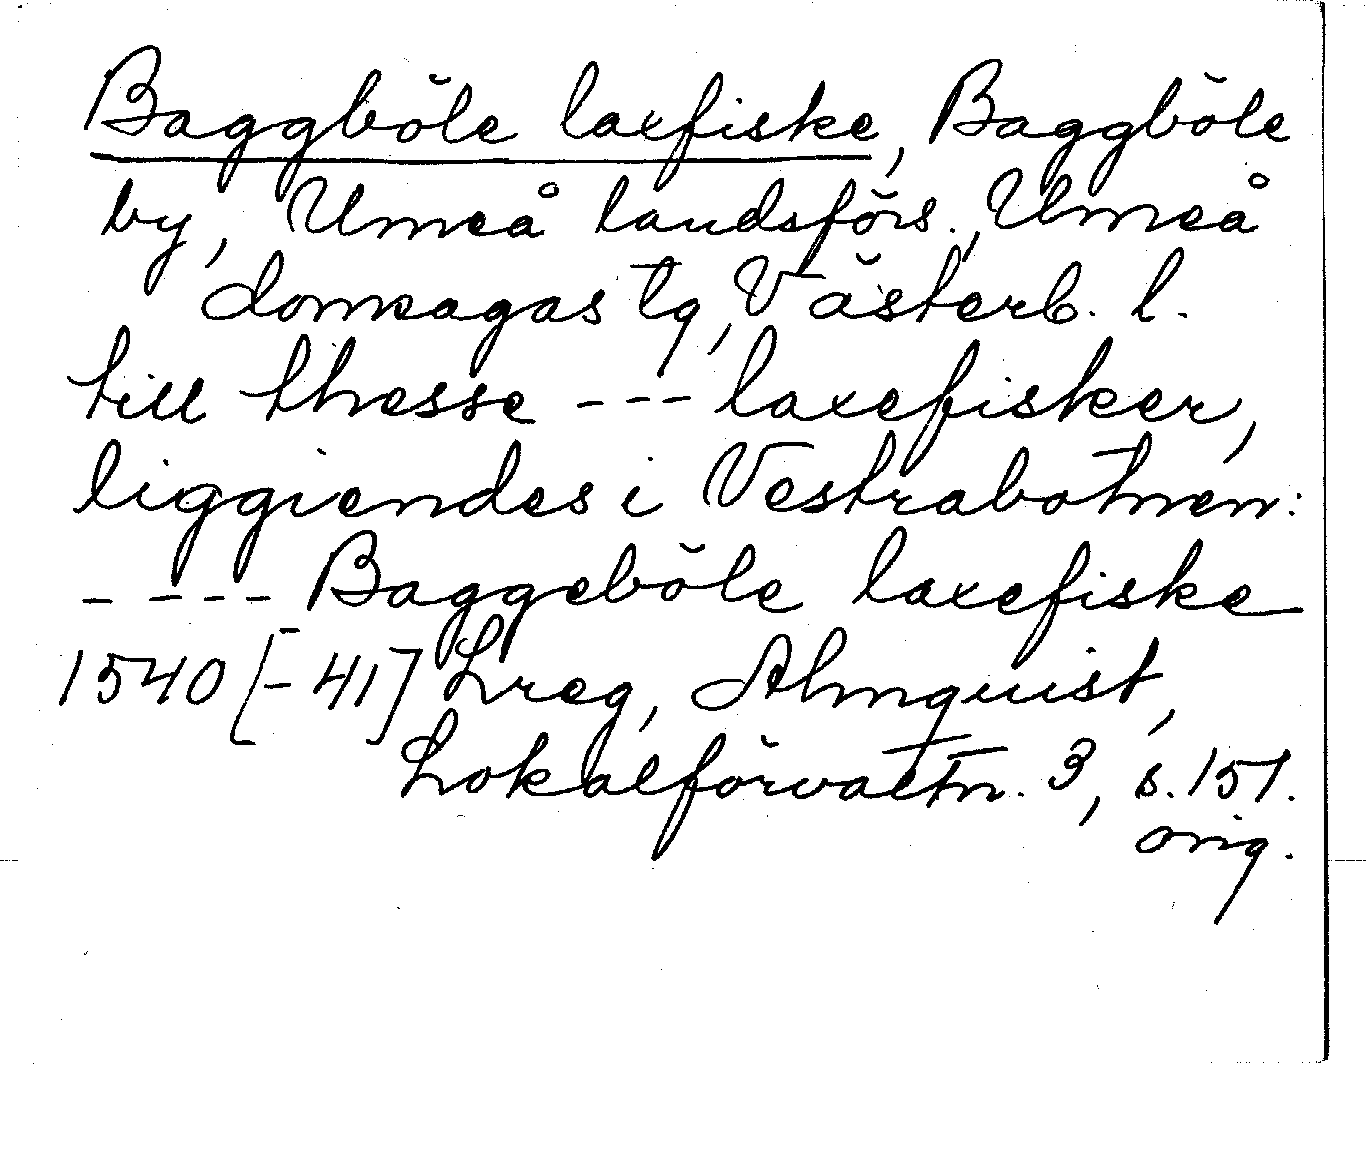 Baggböle laxfiske, Baggböle
by, Umeå landsförs., Umeå
domsagas tg, Västerb. l.
till thesse --- laxefisker,
liggiendes i Vestrabotnen:
---- Baggeböle laxefiske
1540 [-41] Lreg, Almquist,
Lokalförvaltn. 3, s. 151.
orig.